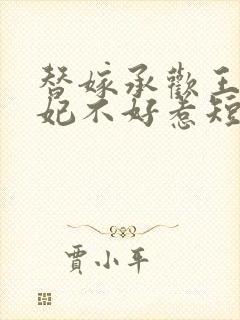 替嫁承歡王
妃不好惹短
賈小平